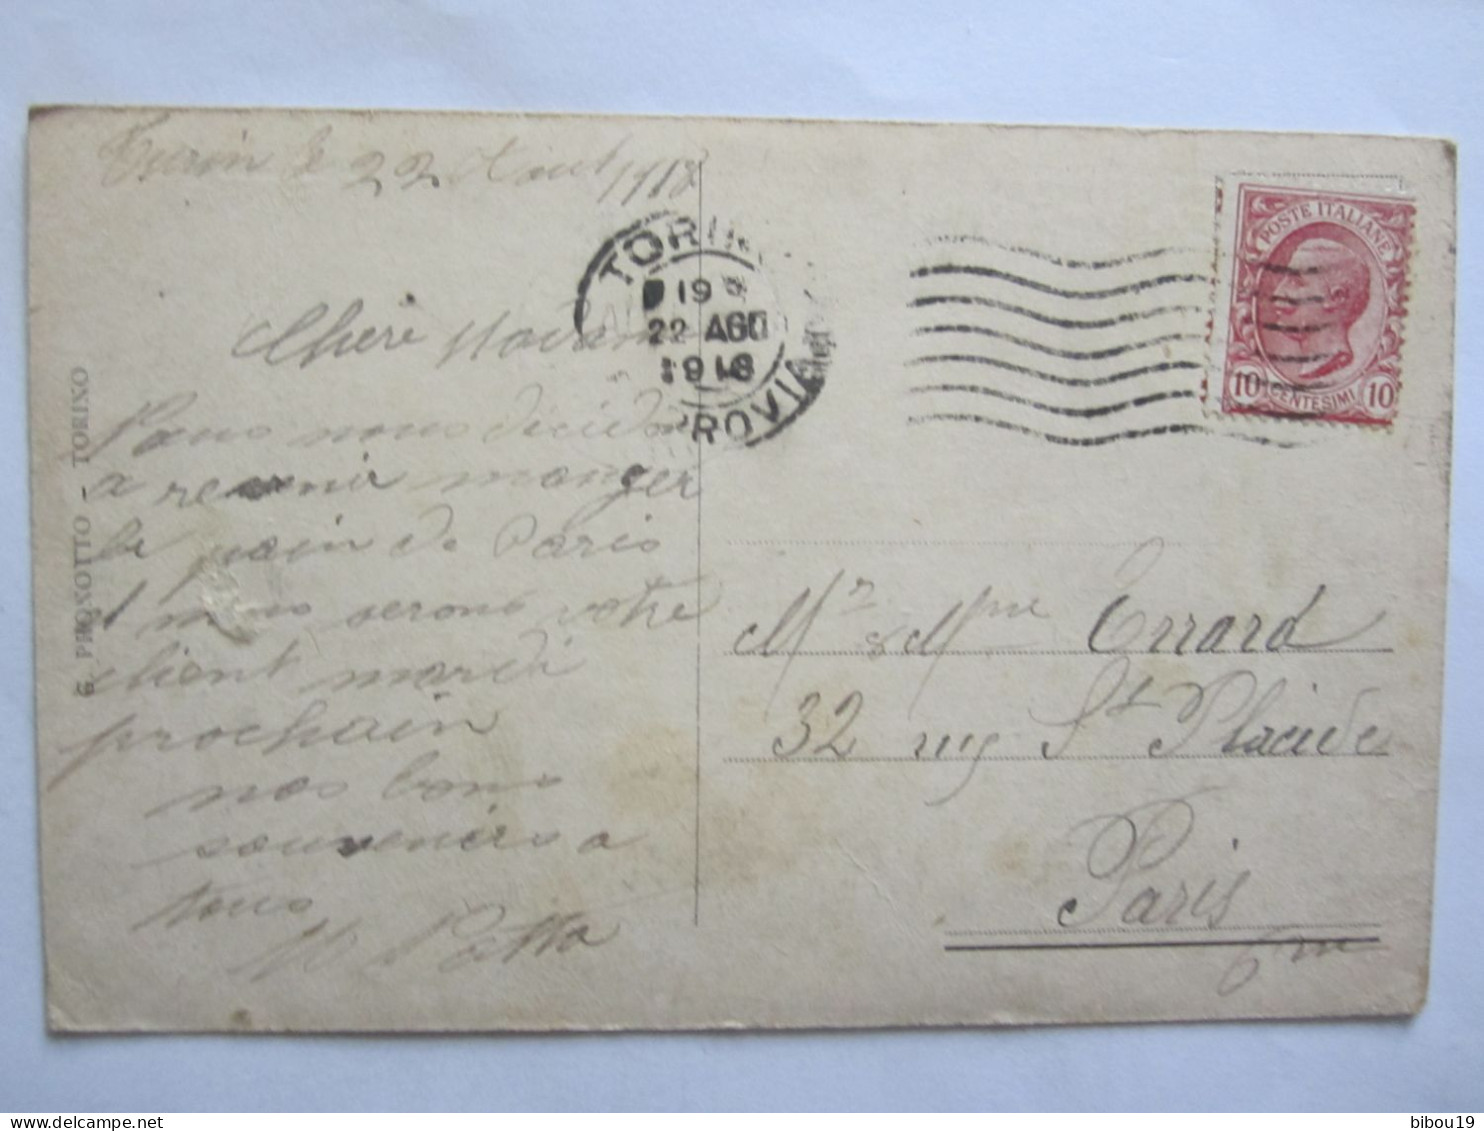 Turin le 22 Aout 1918
Chère Madame
Nous nous décidons
a revenir manger
le pain de Paris
et nous serons votre
client mardi
prochain
nos bons
souvenirs a
tous
M Patta
G. PRONOTTO - TORINO
TORINO
19
22 AGO
1918
FERROVIA
POSTE ITALIANE
10 CENTESIMI 10
Mr & Mme Errard
32 rue St Placide
Paris
6me
bibou19